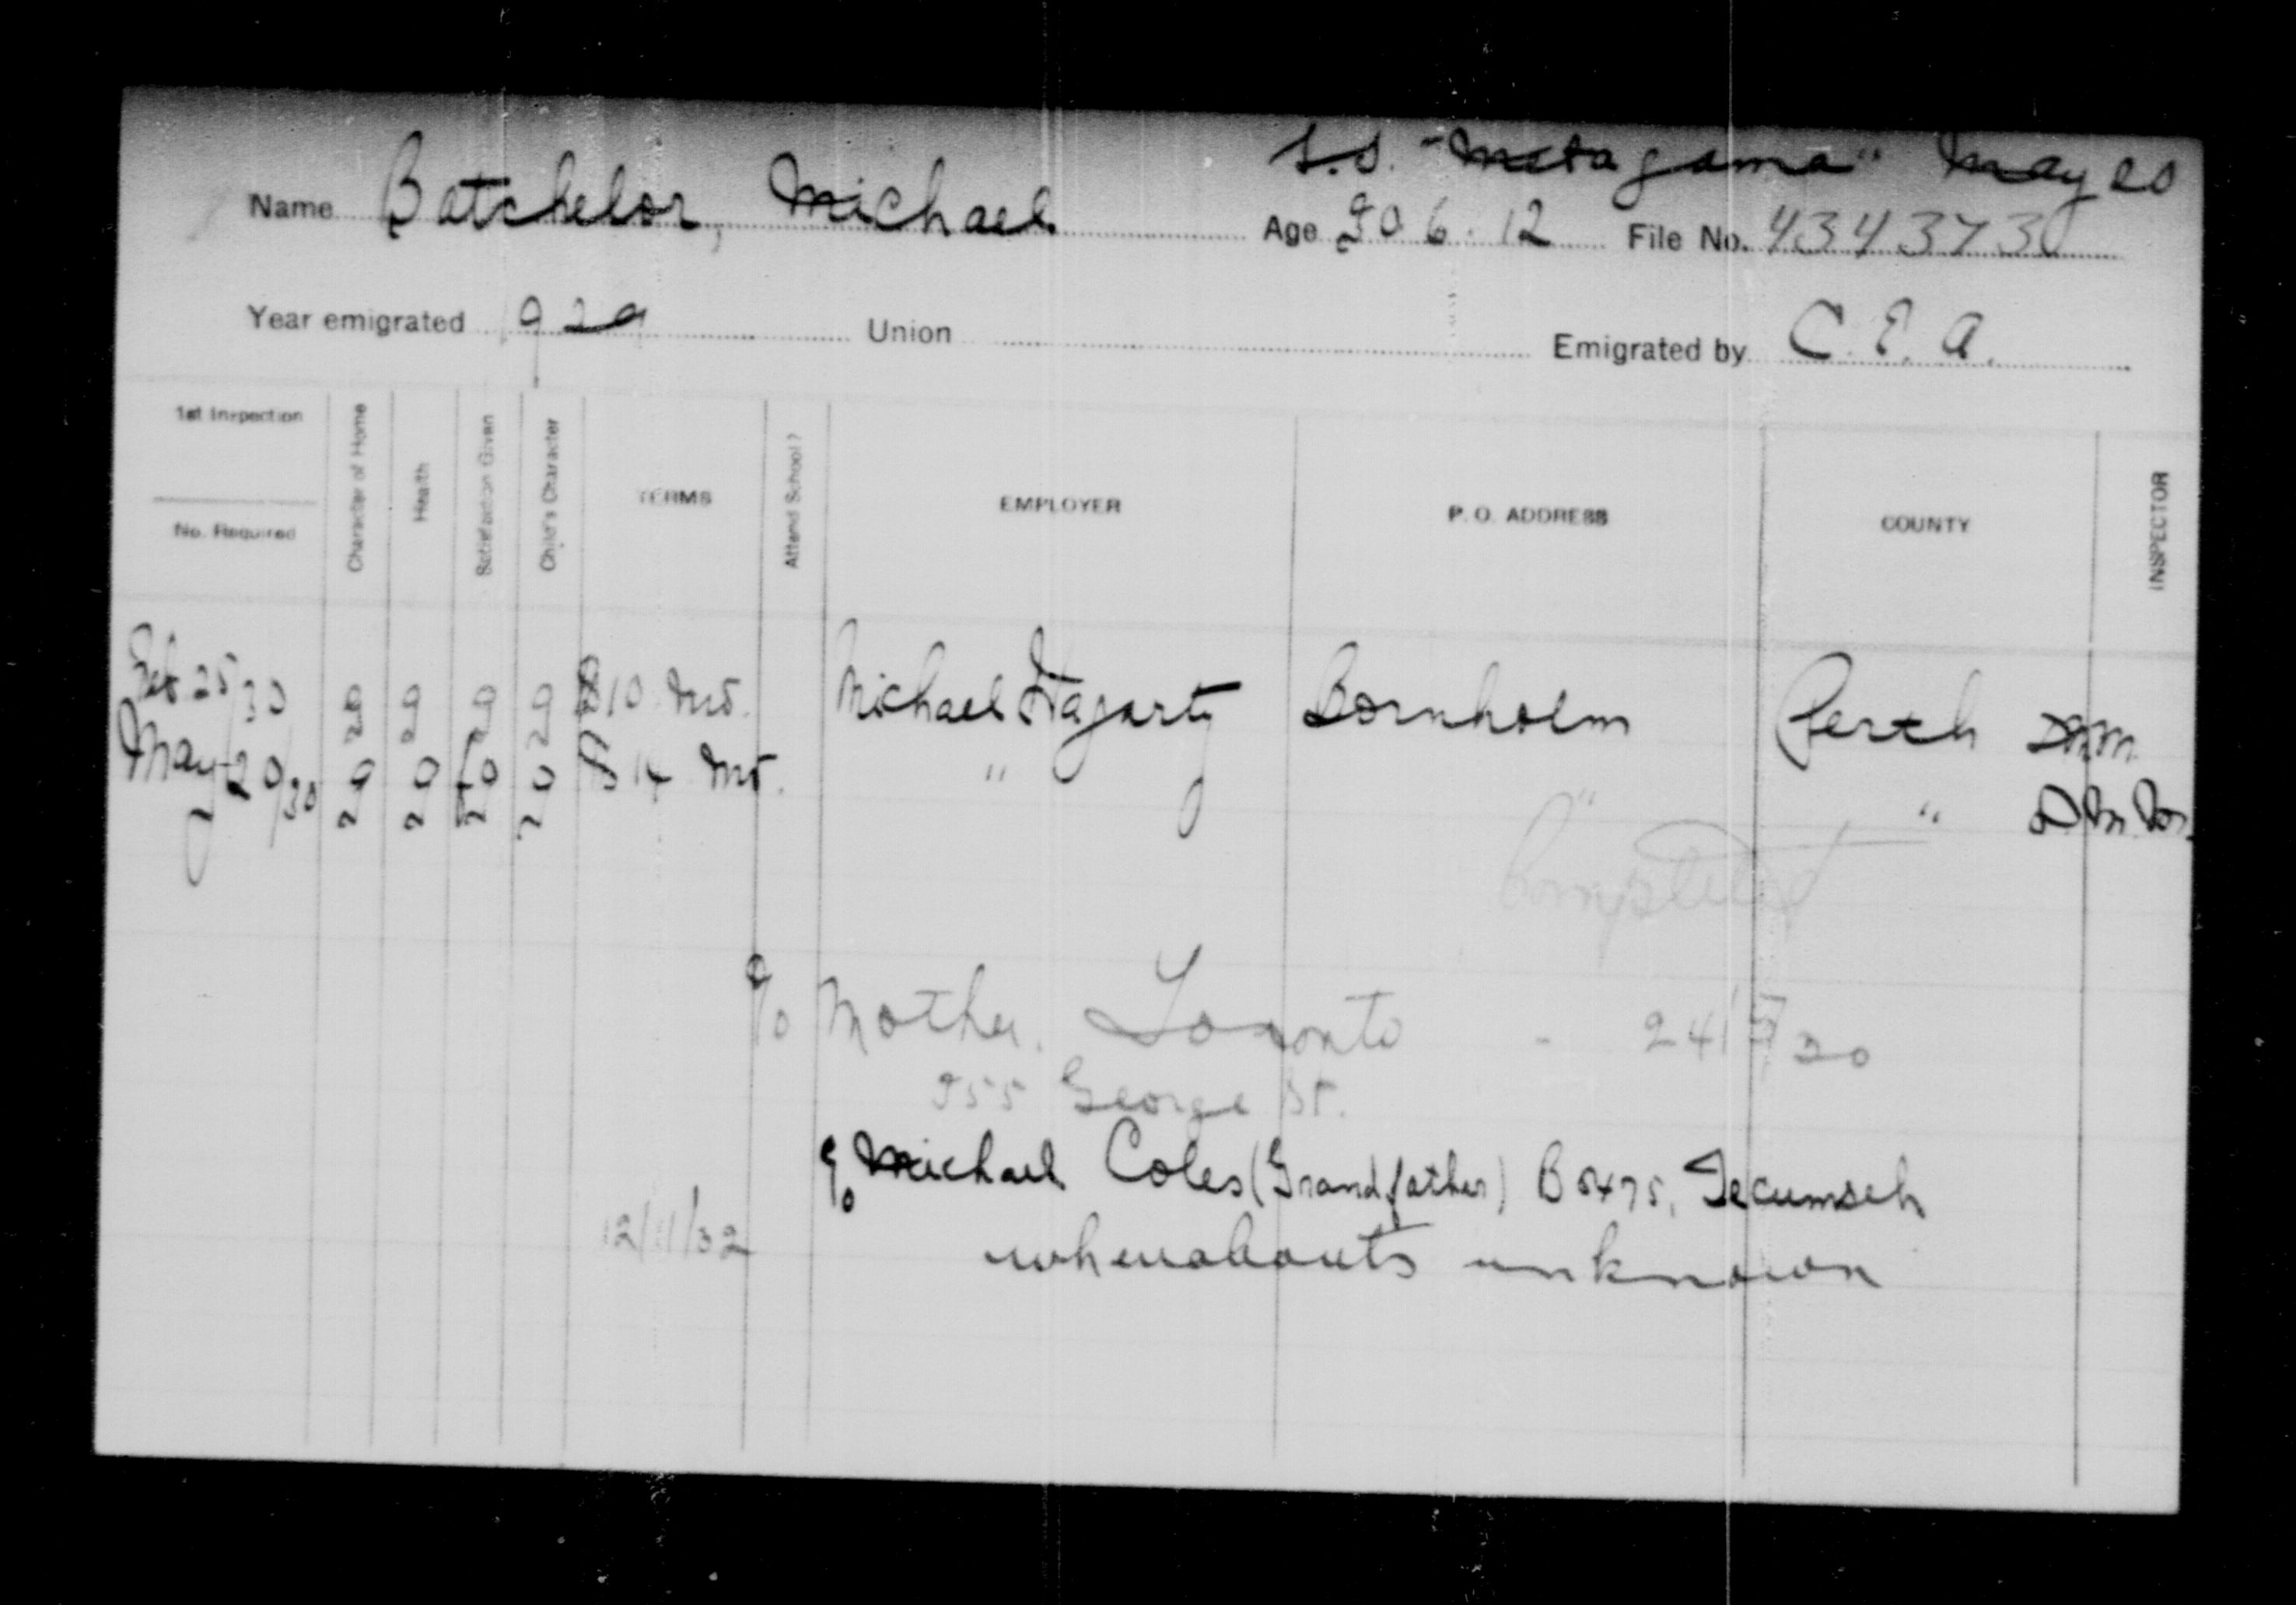 S.S. "Metagama" May 20
Name Batchelor, Michael Age 30.6.12 File No. 434373
Year emigrated 1929 Union Emigrated by C.E.A.
1st Inspection
No. Required
Character of Home
Health
Satisfaction Given
Child's Character
TERMS
Attend School?
EMPLOYER
P. O. ADDRESS
COUNTY
INSPECTOR
Feb 25/30 $10 mo. Michael Hagarty Bornholm Perth
May 20/30 $14 mo. " " "
Completed
c/o Mother. Toronto - 24/5/30
355 George St.
c/o Michael Coles (Grandfather) Box 75, Tecumseh
12/11/32 whereabouts unknown